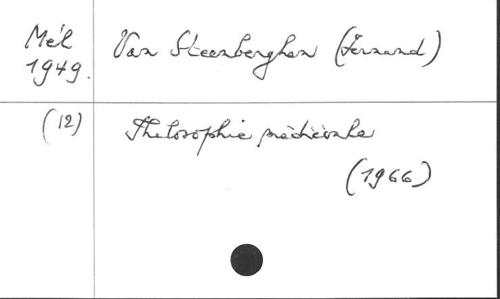 Mél Van Steenberghen (Fernand)
1949.
(12) Philosophie médiévale
(1966)